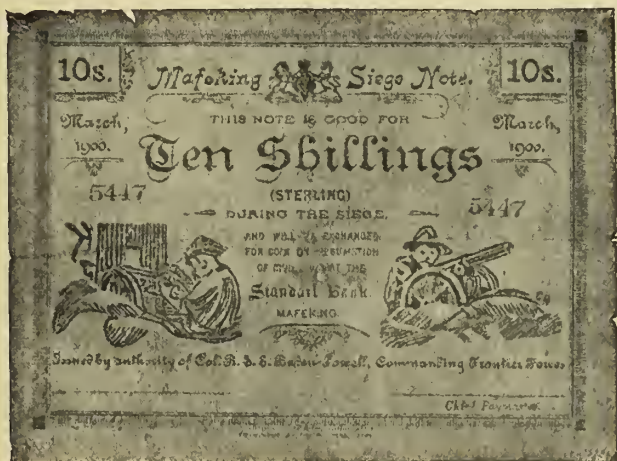 10s. Mafeking Siege Note. 10s.
March, 1900. THIS NOTE IS GOOD FOR March, 1900.
Ten Shillings
5447 (STERLING) 5447
DURING THE SIEGE.
AND WILL BE EXCHANGED
FOR COIN ON RESUMPTION
OF CIVIL AT THE
Standard Bank
MAFEKING.
Issued by authority of Col. R. S. S. Baden-Powell, Commanding Frontier Forces
Chief Paymaster.